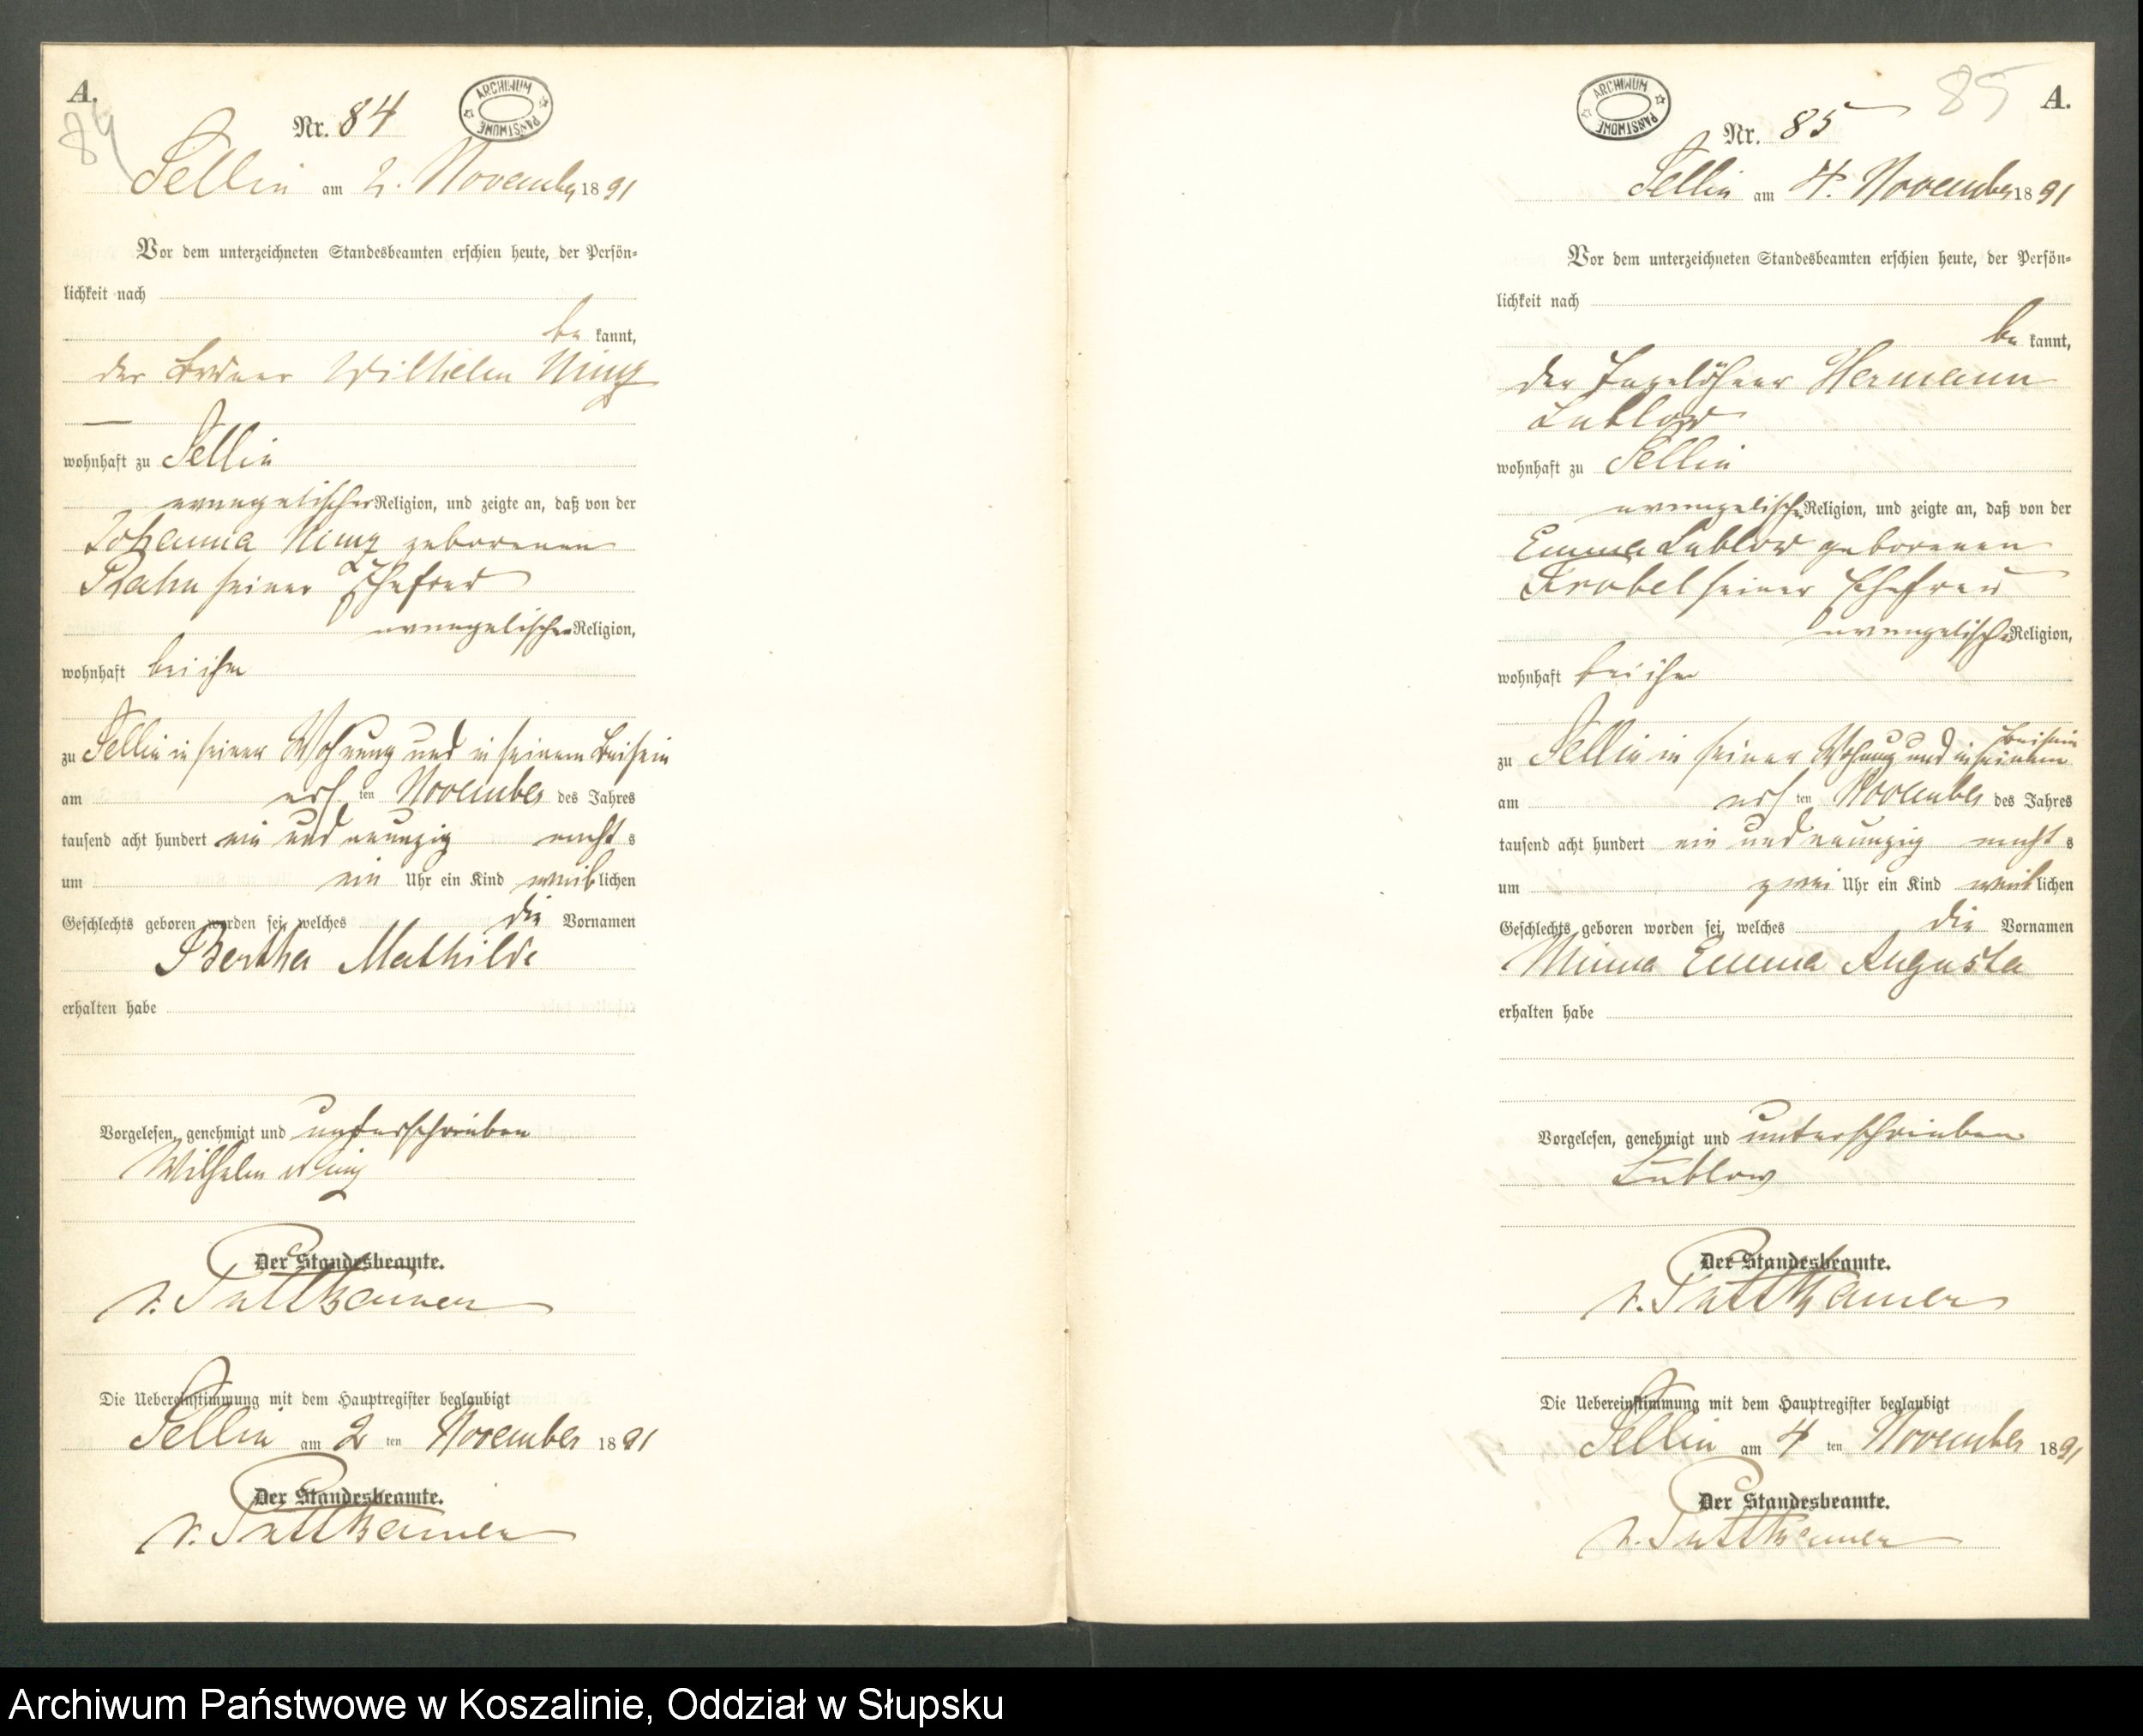 A.
84
Nr. 84
ARCHIWUM PAŃSTWOWE
Sellin am 2. November 1891
Vor dem unterzeichneten Standesbeamten erschien heute, der Persön-
lichkeit nach
be kannt,
der Wilhelm Nimz
wohnhaft zu Sellin
evangelischer Religion, und zeigte an, daß von der
Johanna Nimz geborenen
Rahn seiner Ehefrau
evangelischer Religion,
wohnhaft bei ihm
zu Sellin in seiner Wohnung und in seinem Beisein
am ersten November des Jahres
tausend acht hundert ein und neunzig nachts
um ein Uhr ein Kind weiblichen
Geschlechts geboren worden sei, welches die Vornamen
Bertha Mathilde
erhalten habe
Vorgelesen, genehmigt und unterschrieben
Wilhelm Nimz
Der Standesbeamte.
v. Puttkamer
Die Uebereinstimmung mit dem Hauptregister beglaubigt
Sellin am 2 ten November 1891
Der Standesbeamte.
v. Puttkamer
85
A.
ARCHIWUM PAŃSTWOWE
Nr. 85
Sellin am 4. November 1891
Vor dem unterzeichneten Standesbeamten erschien heute, der Persön-
lichkeit nach
be kannt,
der Tagelöhner Hermann
Lublow
wohnhaft zu Sellin
evangelischer Religion, und zeigte an, daß von der
Emma Lublow geborenen
Krobel seiner Ehefrau
evangelischer Religion,
wohnhaft bei ihm
zu Sellin in seiner Wohnung und in seinem Beisein
am ersten November des Jahres
tausend acht hundert ein und neunzig nachts
um zwei Uhr ein Kind weiblichen
Geschlechts geboren worden sei, welches die Vornamen
Minna Emma Augusta
erhalten habe
Vorgelesen, genehmigt und unterschrieben
Lublow
Der Standesbeamte.
v. Puttkamer
Die Uebereinstimmung mit dem Hauptregister beglaubigt
Sellin am 4 ten November 1891
Der Standesbeamte.
v. Puttkamer
Archiwum Państwowe w Koszalinie, Oddział w Słupsku